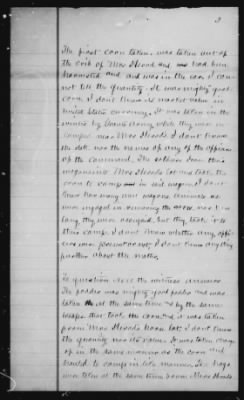 3
The first corn taken was taken out of
the crib of Mrs Hoods and was had been
harvested and was in the ear. I can
not tell the quantity. It was mighty good
corn. I don't know its market value in
United States currency. It was taken in the
winter by Yankee Army while they were in
camps near Mrs Hoods. I don't know
the date nor the names of any of the officers
of the command. The soldiers from their
wagons Mrs Hoods lot and took the
corn to camp in their wagons. I don't
know how many men wagons or
were engaged in removing the corn nor how
long they were occupied. But they took it to
their camp. I don't know whether any offi-
cers were present or not. I don't know anything
further about the matter.
To question the witness answers
The fodder was mighty good fodder and was
taken at the same time & by the same
troops that took the corn, and it was taken
from Mrs Hoods barn lot. I don't know
the quantity nor its value. It was taken
off in the same manner as the corn and
hauled to camp in like manner. The hogs
were taken at the same time from Mrs Hoods